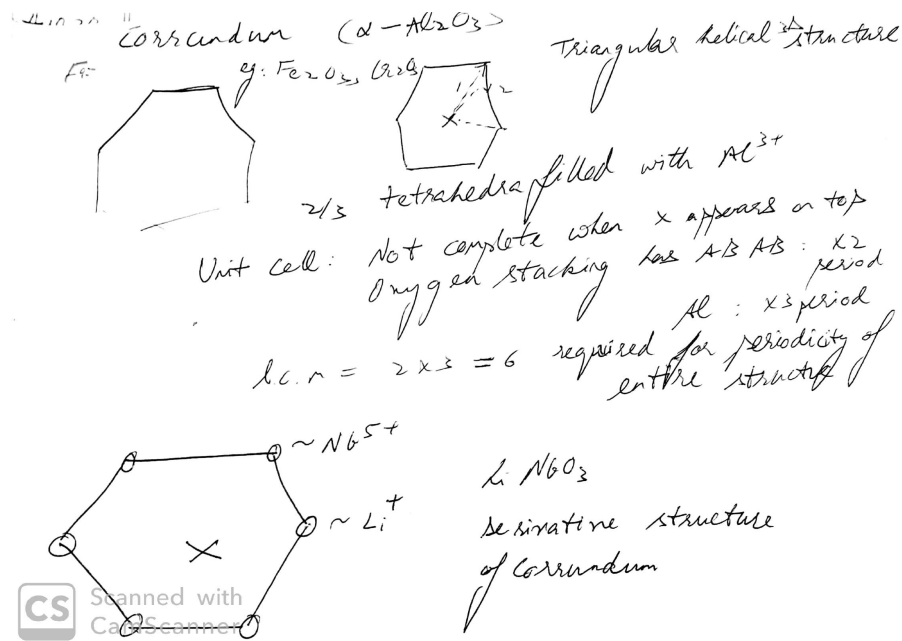 Corrundum (α-Al2O3)
Triangular helical structure
Eg:-
eg: Fe2O3, Cr2O3
1 2
x
2/3 tetrahedra filled with Al3+
Unit cell: Not complete when x appears on top
Oxygen stacking has AB AB : x2 period
Al : x3 period
l.c.m = 2x3 = 6 required for periodicity of entire structure
~ Nb5+
~ Li+
x
Li NbO3
derivative structure
of Corrundum
CS Scanned with
CamScanner